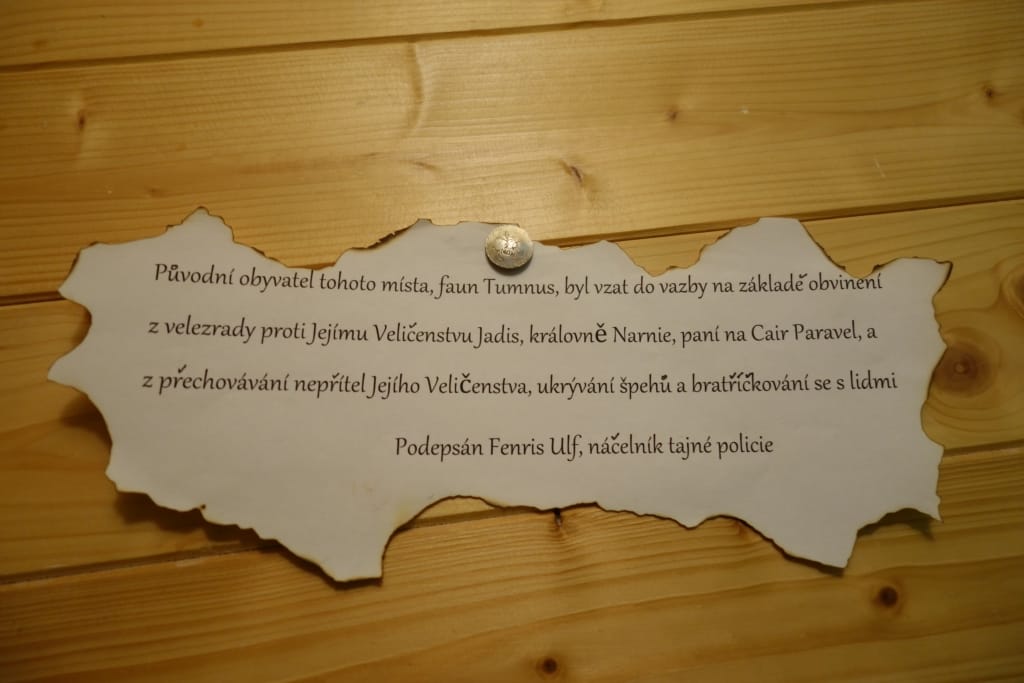 Původní obyvatel tohoto místa, faun Tumnus, byl vzat do vazby na základě obvinení
z velezrady proti Jejímu Veličenstvu Jadis, královně Narnie, paní na Cair Paravel, a
z přechovávání nepřítel Jejího Veličenstva, ukrývání špehů a bratříčkování se s lidmi
Podepsán Fenris Ulf, náčelník tajné policie